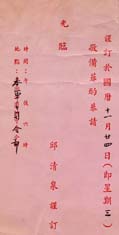 謹訂於國曆十一月廿四日(即星期三)
敬備菲酌恭請
光臨
邱清泉謹訂
時間:午後六時
地點:本軍司令部